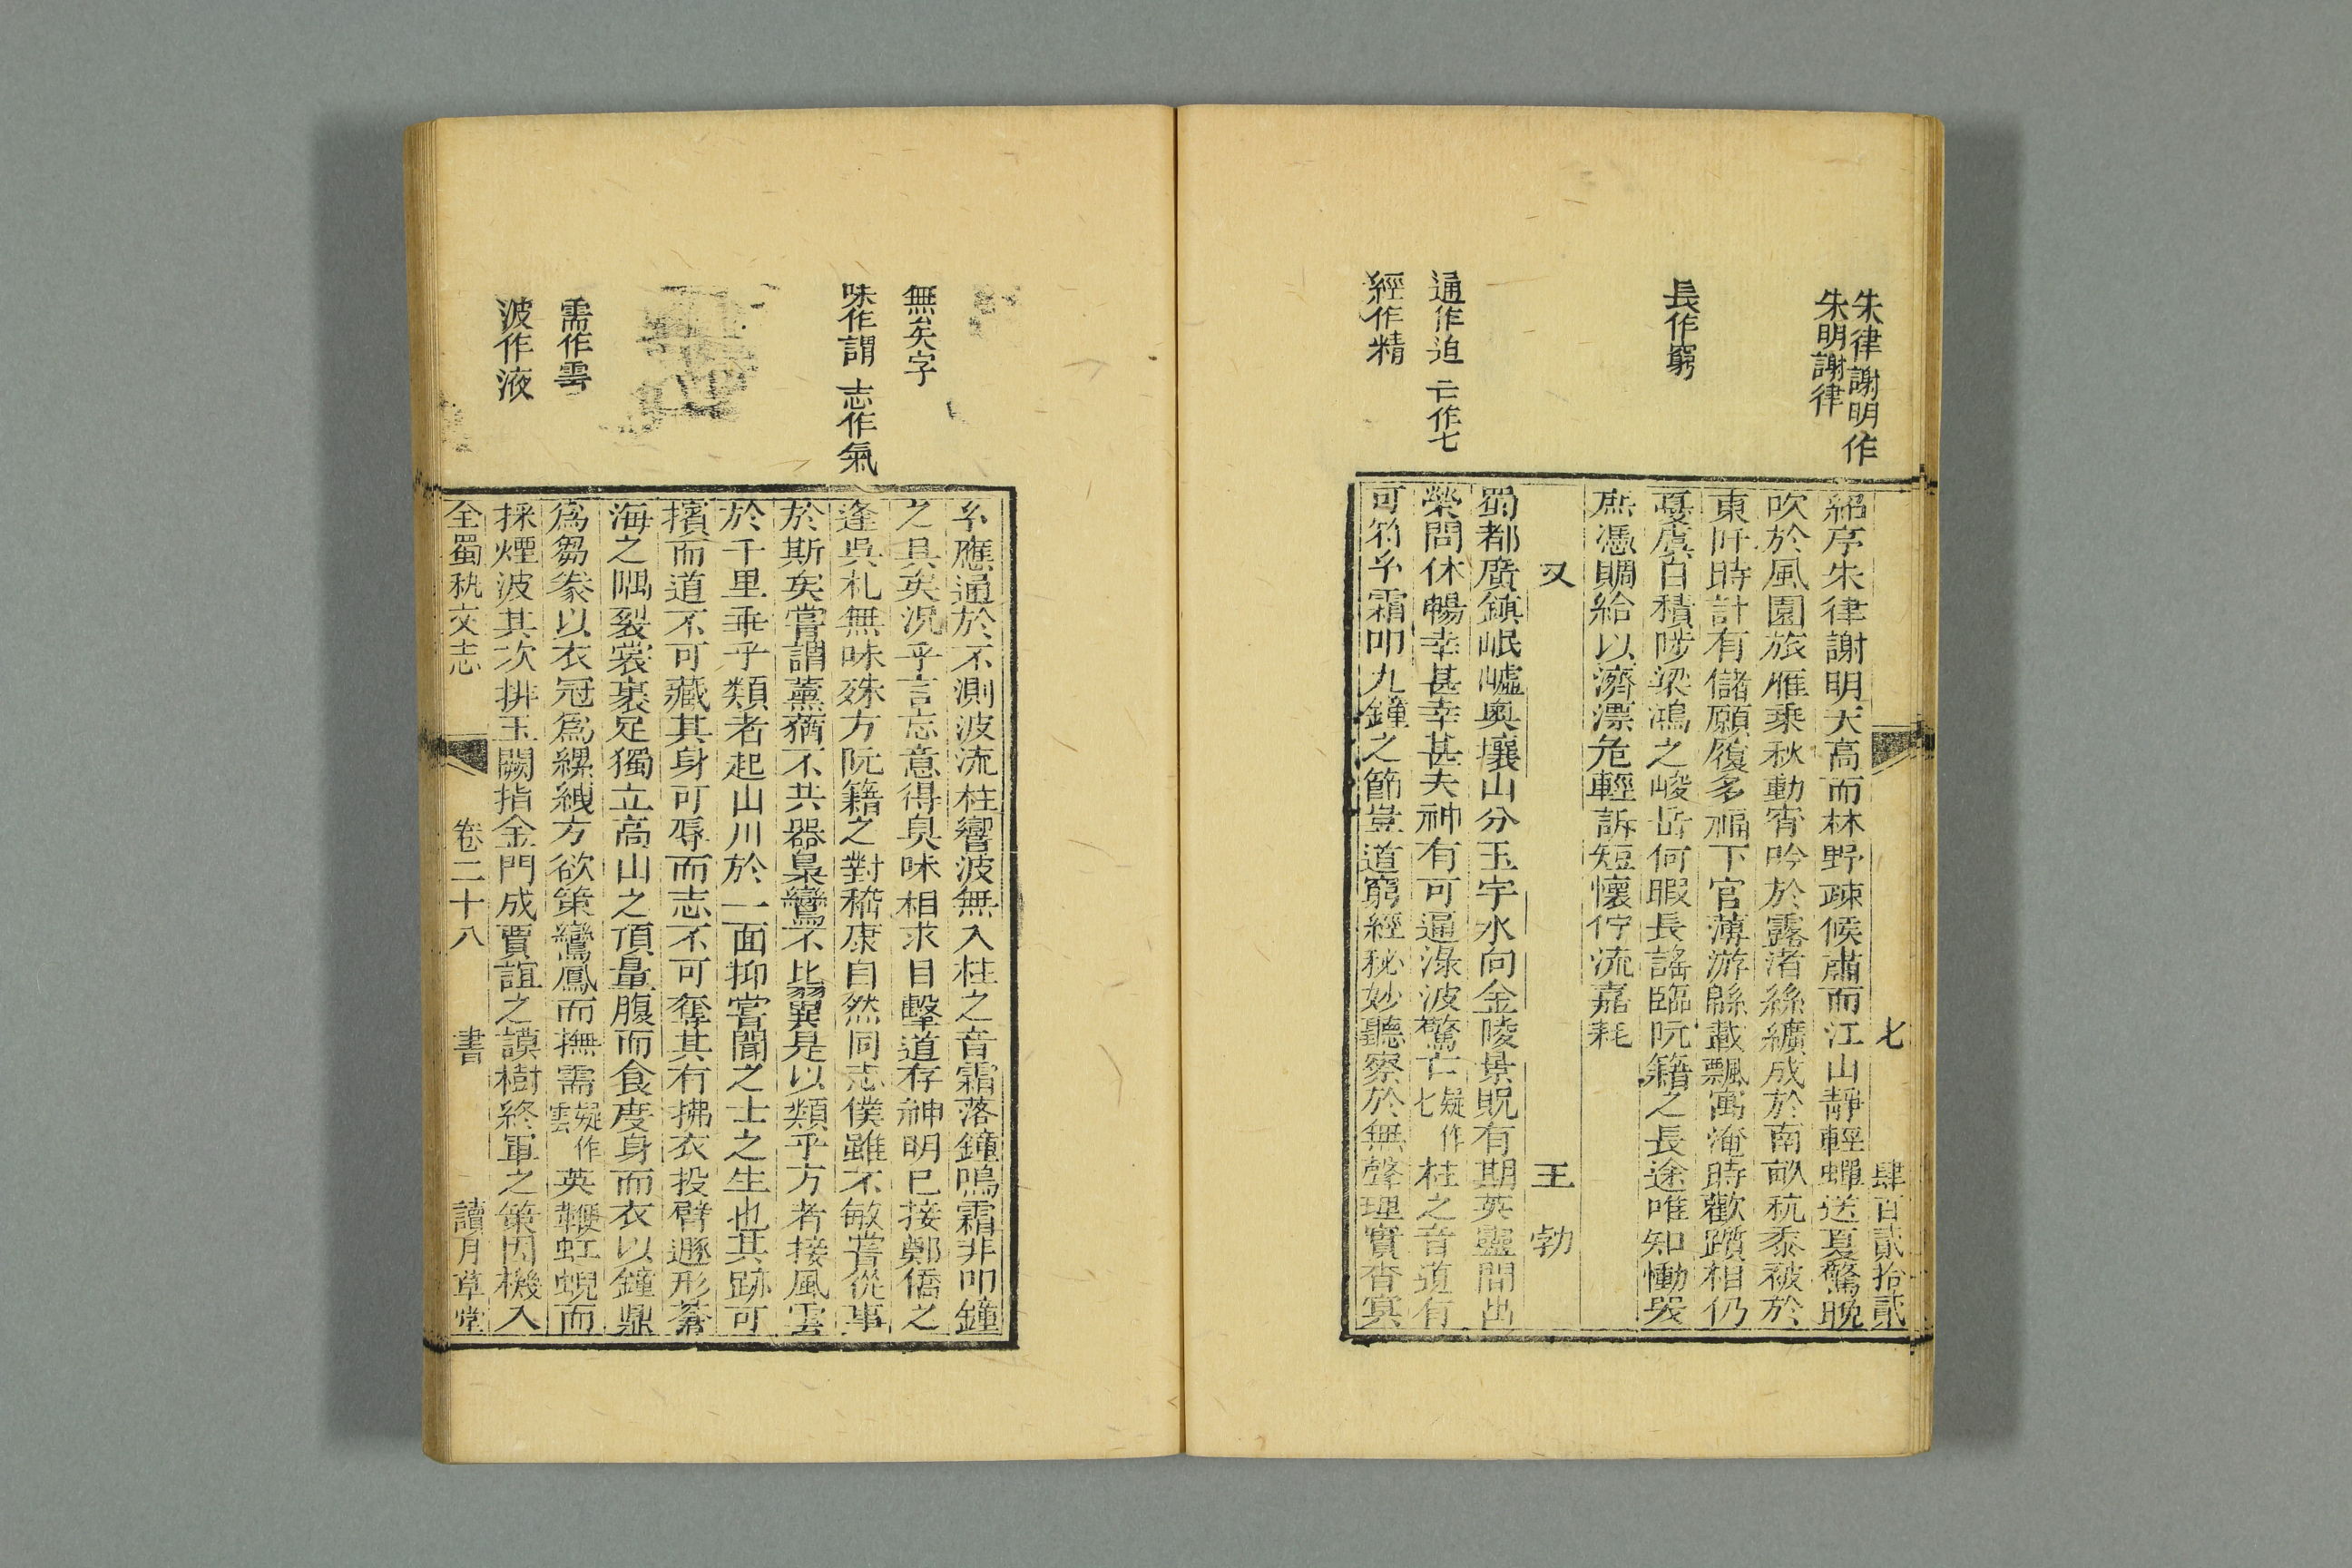 朱律謝明作
朱明謝律
長作窮
通作迫 亡作七
經作精
七 肆百貳拾貳
紹序朱律謝明天高而林野疎候肅而江山靜輕蟬送夏驚晚
吹於風園旅雁乘秋動宵吟於露渚絲纊成於南畝秔黍被於
東阡時計有儲願履多福下官薄游緜載飄寓淹時歡躓相仍
憂虞自積陟梁鴻之峻岳何暇長謠臨阮籍之長途唯知慟哭
庶憑賙給以濟漂危輕訴短懷佇流嘉耗
又 王勃
蜀都廣鎮岷嶓奧壤山分玉宇水向金陵景貺有期英靈間出
榮問休暢幸甚幸甚夫神有可通淥波驚亡疑作七柱之音道有
可符糸霜叩九鐘之節豈道窮經秘妙聽察於無聲理實杳冥
無矣字
味作謂 志作氣
需作雲
波作液
糸應通於不測波流柱響波無入柱之音霜落鐘鳴霜非叩鐘
之具矣況乎言忘意得臭味相求目擊道存神明已接鄭僑之
逢吳札無味殊方阮籍之對嵇康自然同志僕雖不敏嘗從事
於斯矣嘗謂薰蕕不共器梟鸞不比翼是以類乎方者接風雲
於千里乖乎類者起山川於一面抑嘗聞之士之生也其跡可
擯而道不可藏其身可辱而志不可奪其有拂衣投臂遯形藂
海之隅裂裳裹足獨立高山之頂量腹而食度身而衣以鐘鼎
爲芻豢以衣冠爲縲紲方欲策鸞鳳而撫需疑作雲英鞭虹蜺而
採煙波其次排玉闕指金門成賈誼之謨樹終軍之策因機入
全蜀秇文志 卷二十八 書 讀月草堂